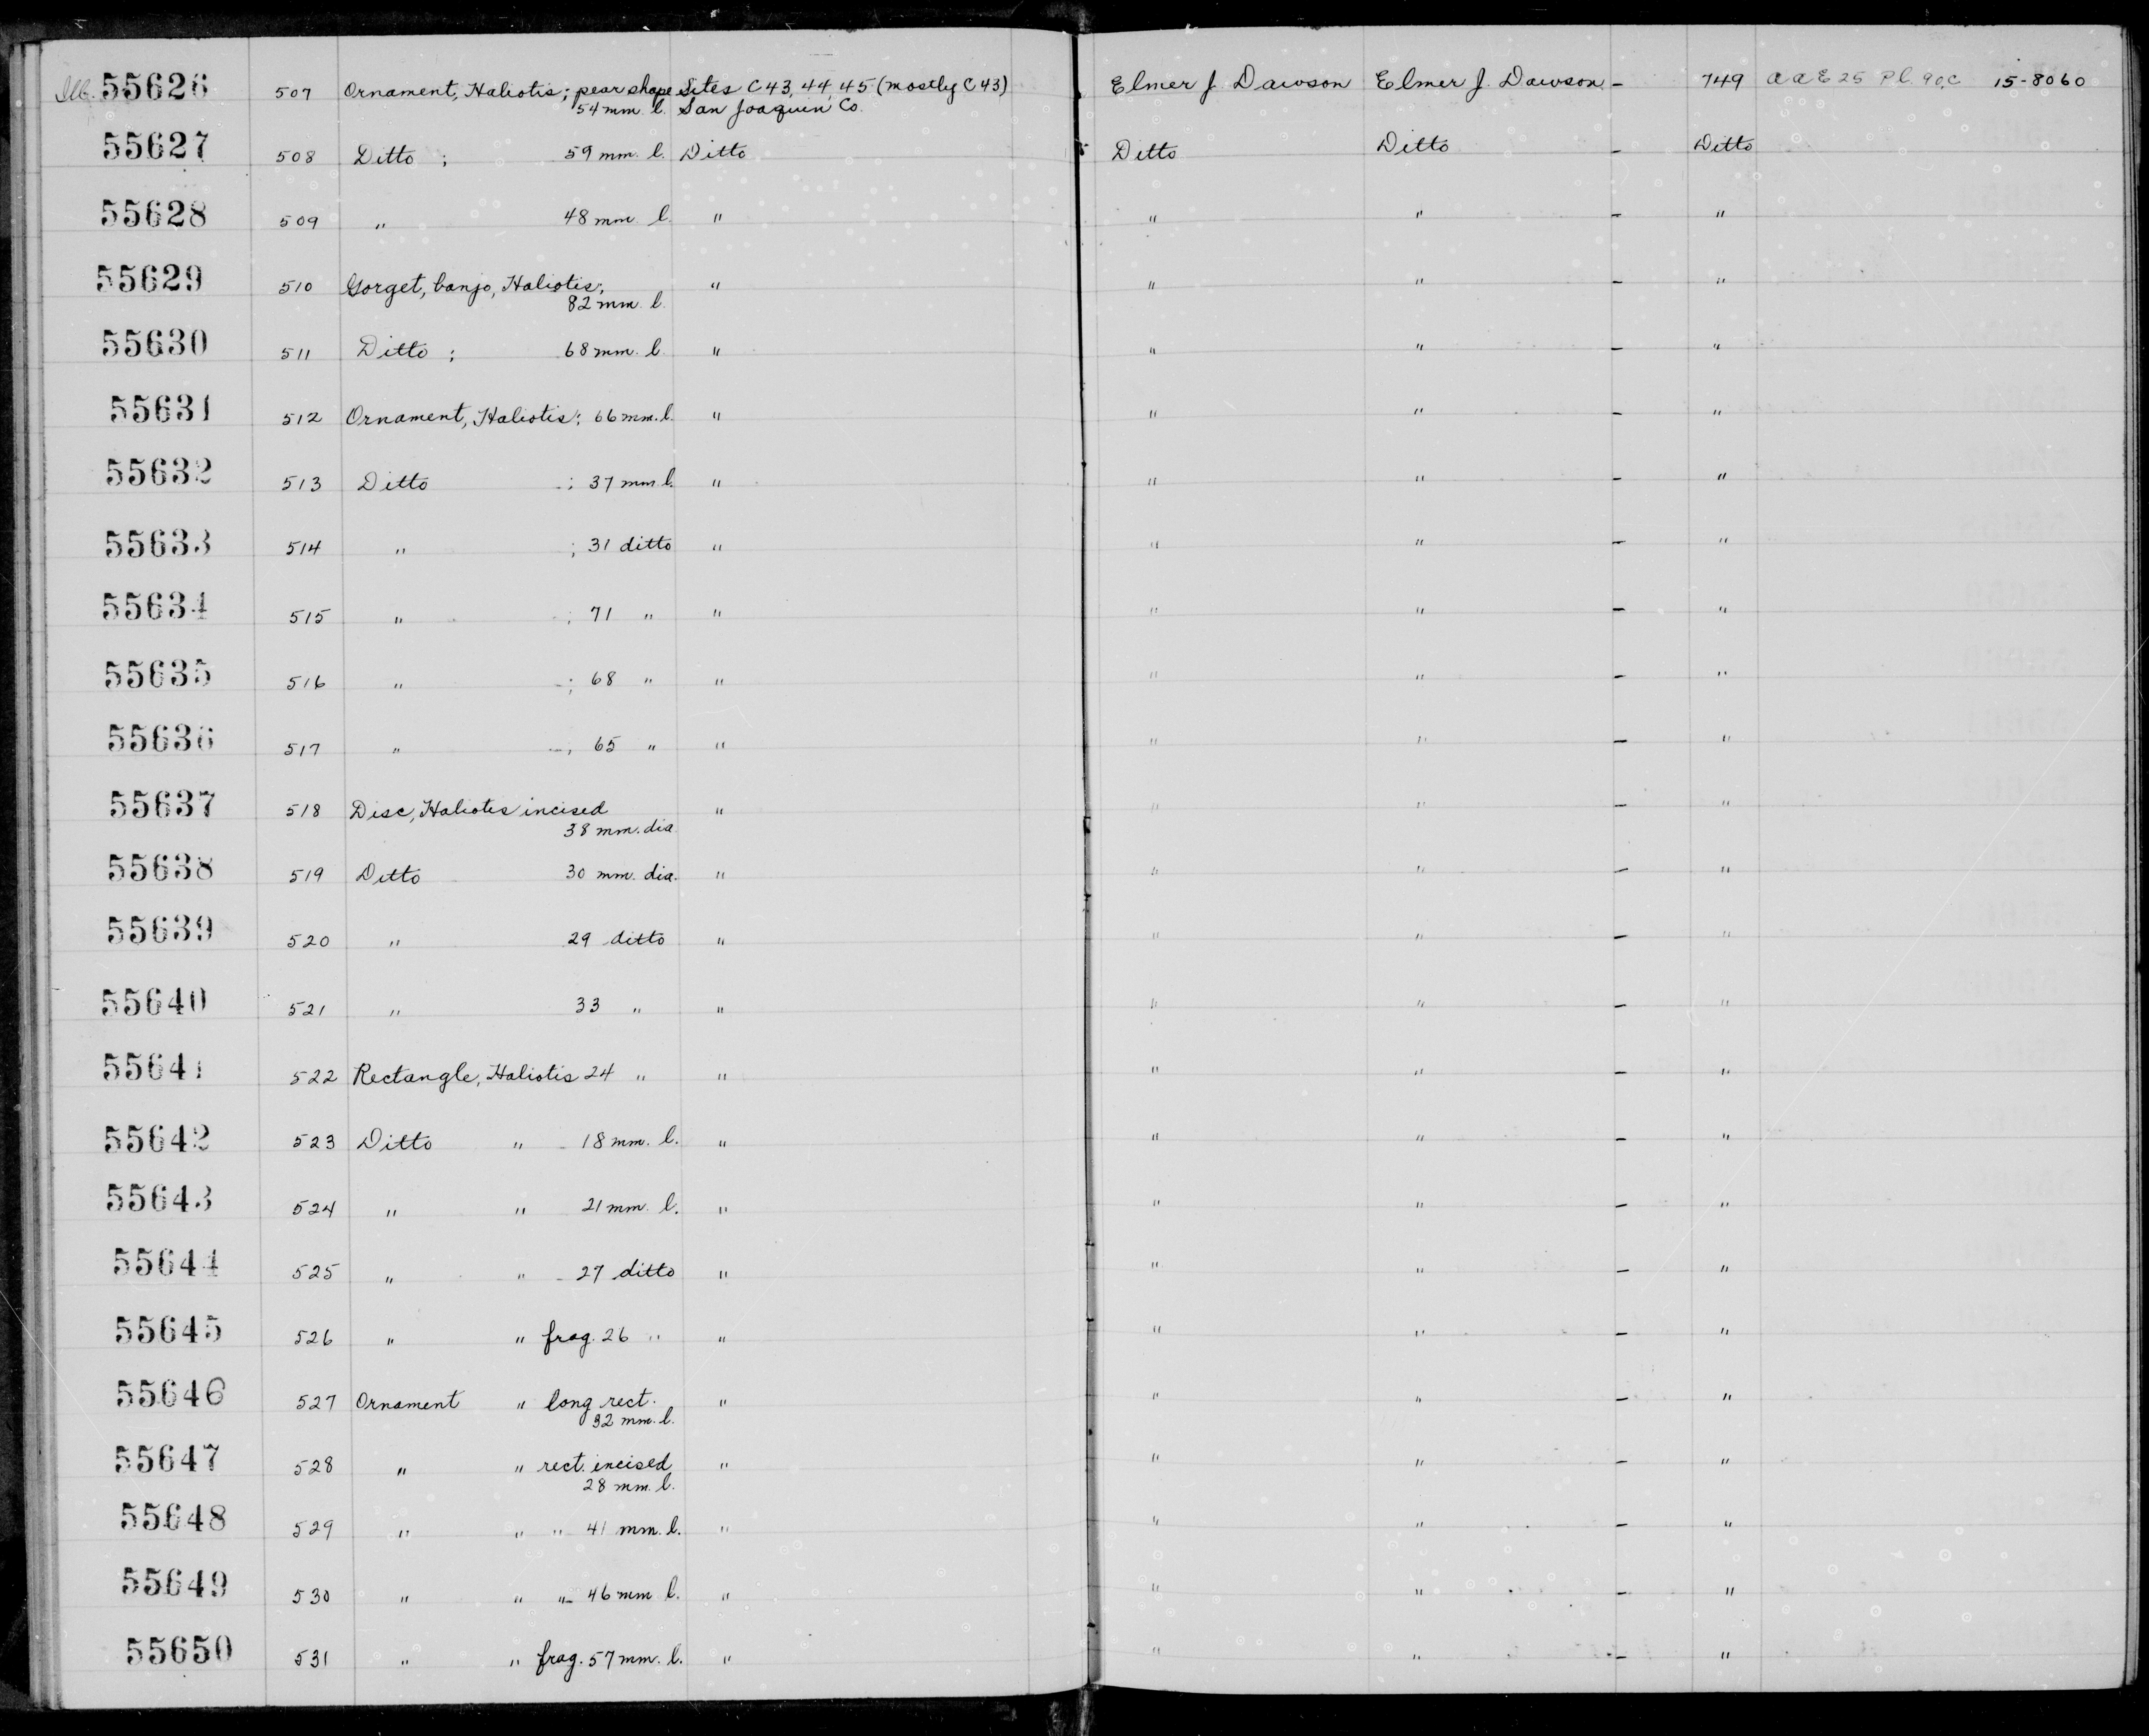 Ill. 55626 507 Ornament, Haliotis; pear shape Sites C43, 44 45 (mostly C43) Elmer J. Dawson Elmer J. Dawson - 749 a a E 25 Pl. 90,C 15-8060
54 mm. l. San Joaquin Co
55627 508 Ditto ; 59 mm. l. Ditto Ditto Ditto - Ditto
55628 509 " 48 mm l. " " " - "
55629 510 Gorget, banjo, Haliotis; " " " - "
82 mm. l.
55630 511 Ditto ; 68 mm. l. " " " - "
55631 512 Ornament, Haliotis; 66 mm. l. " " " - "
55632 513 Ditto ; 37 mm l. " " " - "
55633 514 " ; 31 ditto " " " - "
55634 515 " ; 71 " " " " - "
55635 516 " ; 68 " " " " - "
55636 517 " ; 65 " " " " - "
55637 518 Disc, Haliotis incised " " " - "
38 mm. dia
55638 519 Ditto 30 mm. dia. " " " - "
55639 520 " 29 ditto " " " - "
55640 521 " 33 " " " " - "
55641 522 Rectangle, Haliotis 24 " " " " - "
55642 523 Ditto " 18 mm. l. " " " - "
55643 524 " " 21 mm. l. " " " - "
55644 525 " " 27 ditto " " " - "
55645 526 " " frag. 26 " " " " - "
55646 527 Ornament " long rect. " " " - "
32 mm. l.
55647 528 " " rect. incised " " " - "
28 mm. l.
55648 529 " " " 41 mm. l. " " " - "
55649 530 " " " 46 mm l. " " " - "
55650 531 " " frag. 57 mm. l. " " " - "